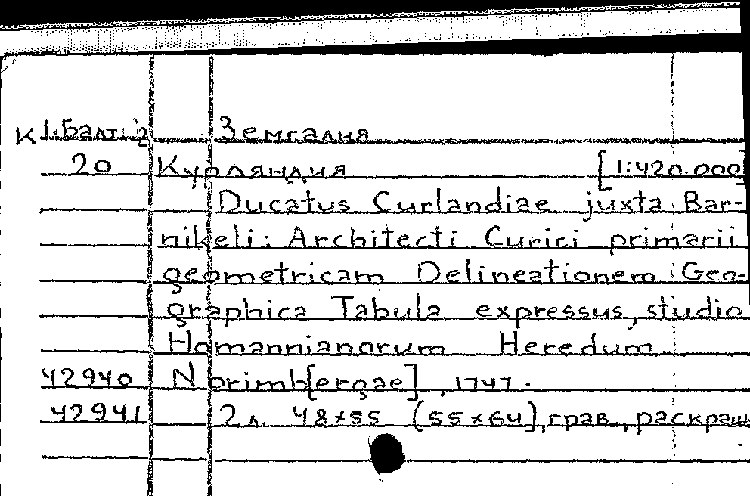 К 1.Балт. 2 Земгалия
20 Курляндия [1:420.000]
Ducatus Curlandiae juxta Bar-
nikeli: Architecti Curici primarii
geometricam Delineationem Geo-
graphica Tabula expressus, studio
Homannianorum Heredum
42940 Norimb[ergae], 1747.
42941 2 л. 48×55 (55×64), грав., раскраш